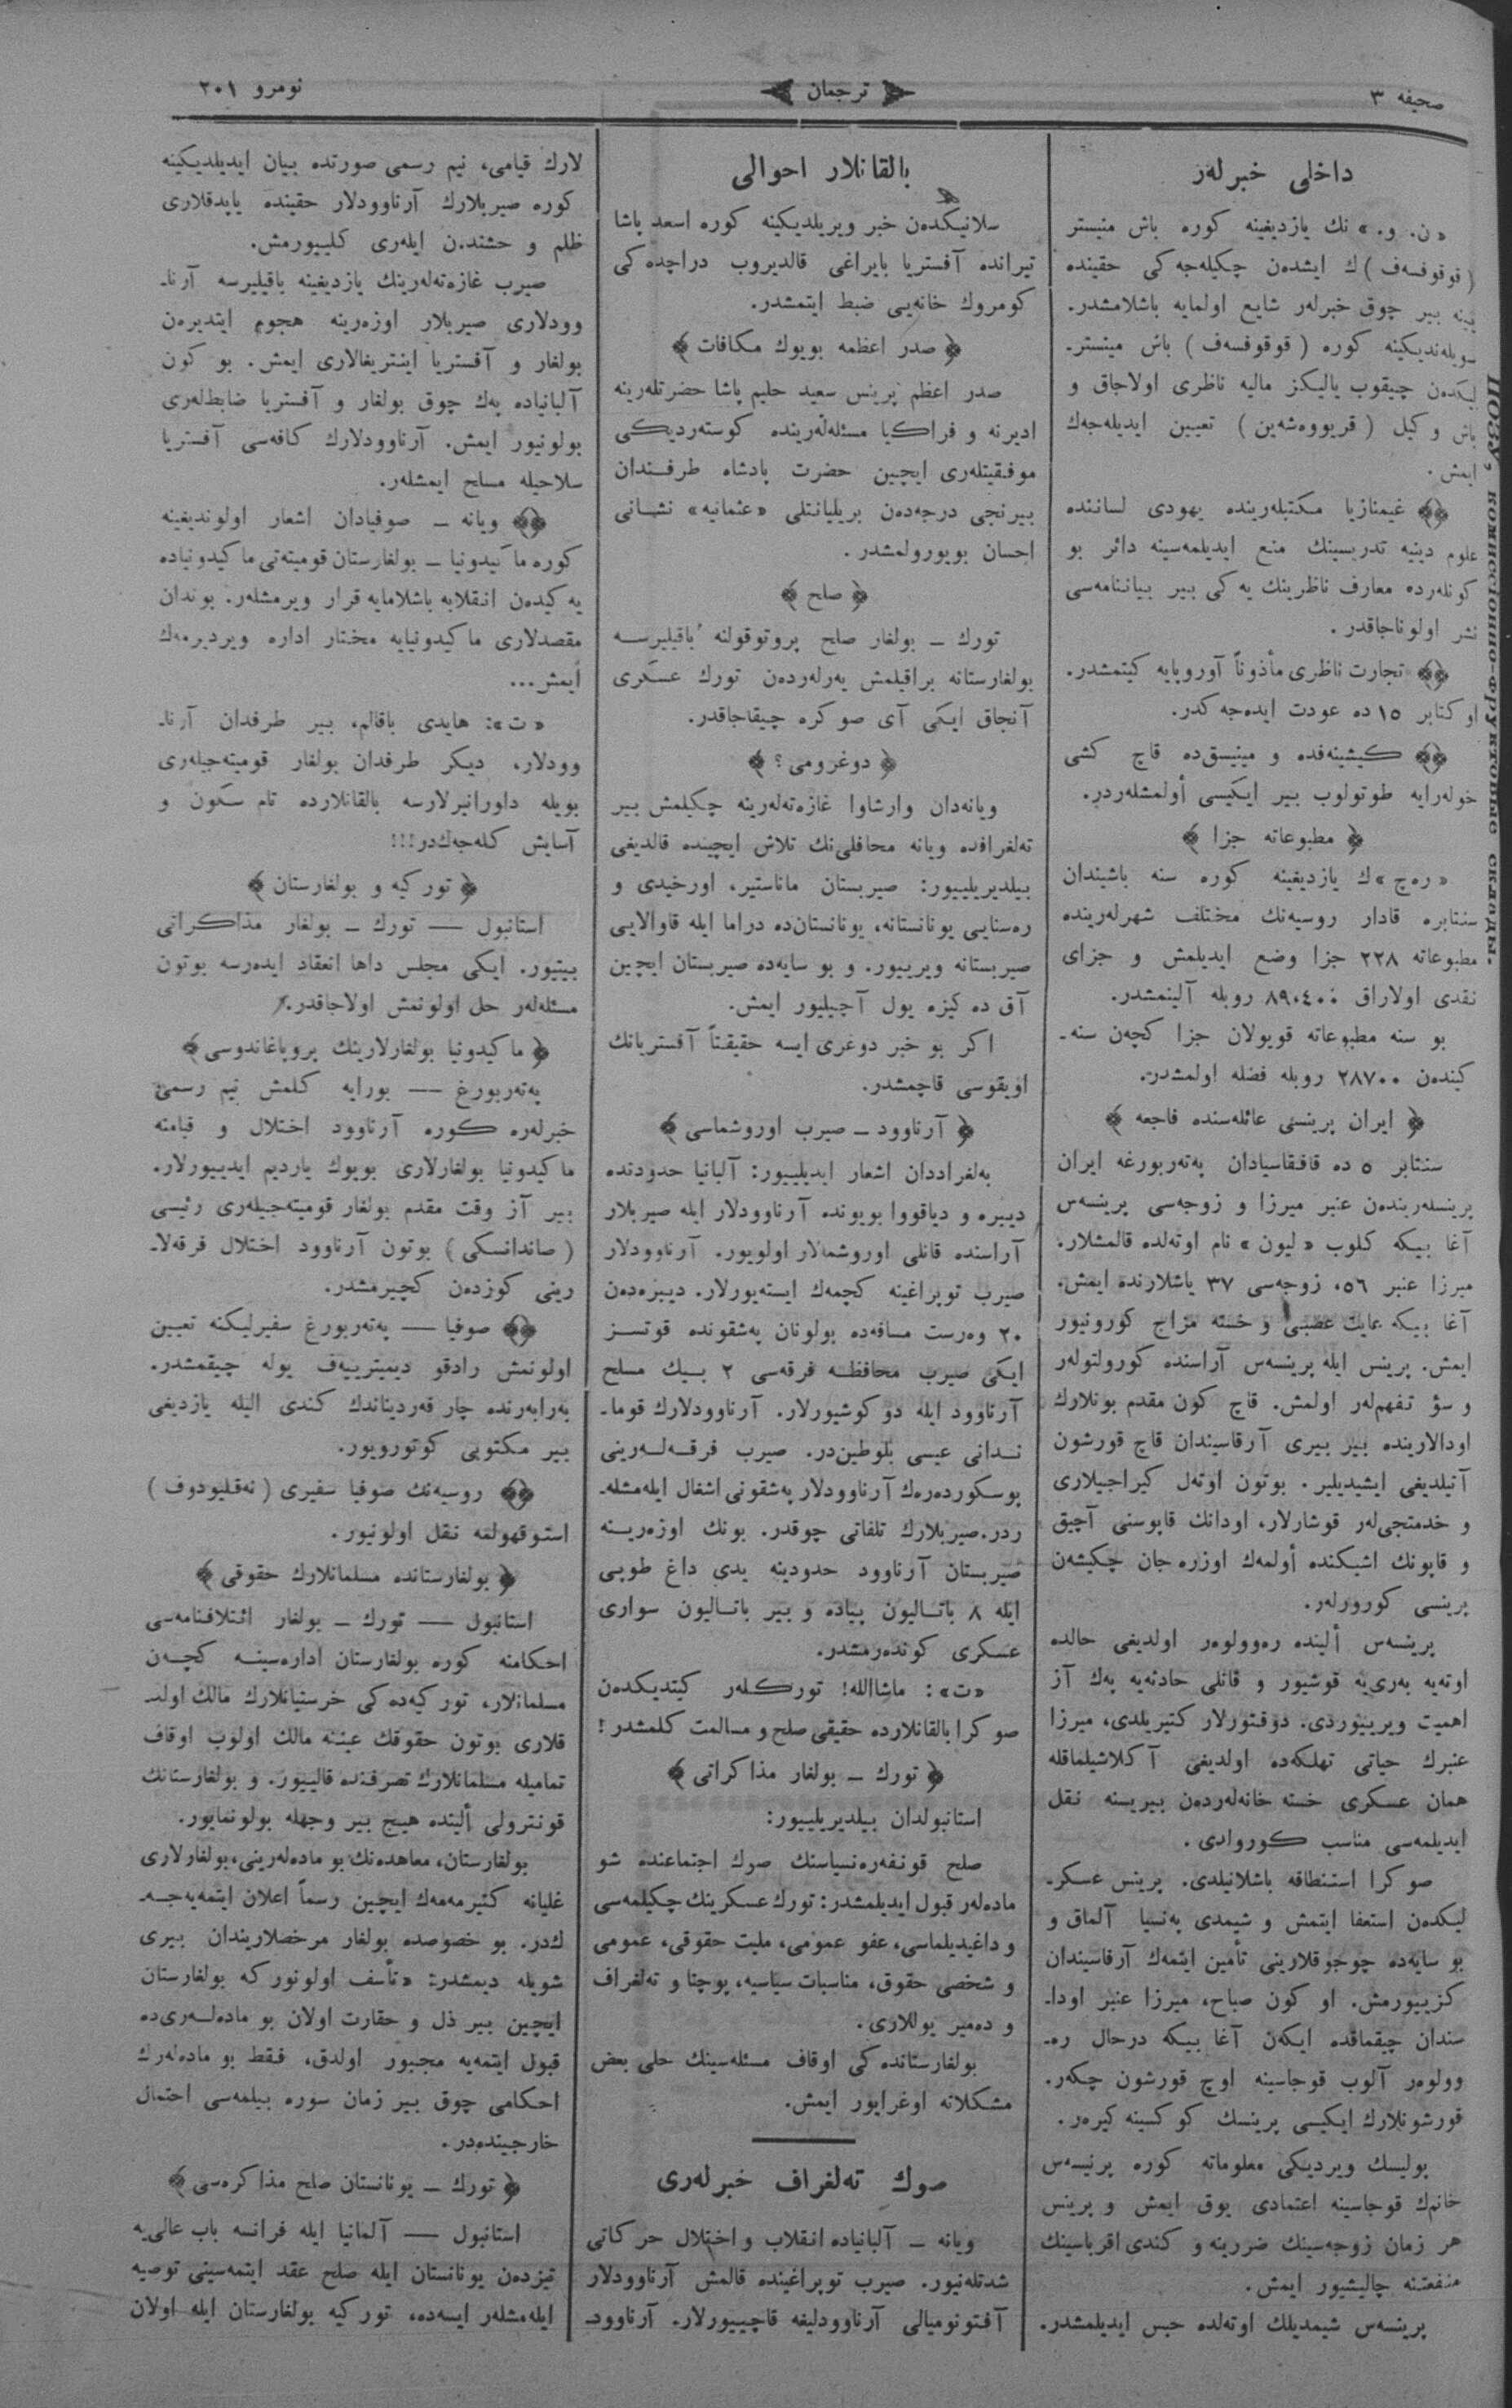 صحيفه ٣
ترجمان
نومرو ٢٠١
داخلی خبرلەر
«ن. و.» نك يازديغينه كوره باش منيستر
(قوقوفسەف)ك ايشدەن چكيلەجەكی حقينده
يينه بير چوق خبرلەر شايع اولمايه باشلامشدر.
سويلەنديكينه كوره (قوقوفسەف) باش مينستر-
ليكدەن چيقوب ياليكز ماليه ناظری اولاجاق و
باش وكيل (قريووەشەين) تعيين ايديلەجەك
ايمش.
غيمنازيا مكتبلەرينده يهودی لساننده
علوم دينيه تدريسينك منع ايديلمەسينه دائر بو
كونلەرده معارف ناظرينك يەكی بير بياننامەسی
نشر اولوناجاقدر.
تجارت ناظری مأذوناً آوروپايه كيتمشدر.
اوكتابر ١٥ده عودت ايدەجەكدر.
كيشينەفده و مينيسق‌ده قاچ كشی
خولەرايه طوتولوب بير ايكيسی أولمشلەردر.
﴿ مطبوعاته جزا ﴾
«رەچ»ك يازديغينه كوره سنه باشيندان
سنتابره قادار روسيەنك مختلف شهرلەرينده
مطبوعاته ٢٢٨ جزا وضع ايديلمش و جزای
نقدی اولاراق ٨٩،٤٠٠ روبله آلينمشدر.
بو سنه مطبوعاته قويولان جزا كچەن سنه-
كيندەن ٢٨٧٠٠ روبله فضله اولمشدر.
﴿ ايران پرينسی عائلەسنده فاجعه ﴾
سنتابر ٥ ده قافقاسيادان پەتەربورغه ايران
پرينسلەريندەن عنبر ميرزا و زوجەسی پرينسەس
آغا بيكه كلوب «ليون» نام اوتەلده قالمشلار.
ميرزا عنبر ٥٦، زوجەسی ٣٧ ياشلارنده ايمش.
آغا بيكه غايت عصبی و خسته مزاج كورونيور
ايمش. پرينس ايله پرينسەس آراسنده كورولتولەر
و سؤ تفهم‌لەر اولمش. قاچ كون مقدم بونلارك
اودالارينده بير بيری آرقاسيندان قاچ قورشون
آتيلديغی ايشيديلير. بوتون اوتەل كيراجيلاری
و خدمتجی‌لەر قوشارلار، اودانك قاپوسنی آچيق
و قاپونك اشيكنده أولمەك اوزره جان چكيشەن
پرينسی كورورلەر.
پرينسەس ألينده رەوولوەر اولديغی حالده
اوتەيه بەری‌يه قوشيور و قانلی حادثەيه پەك آز
اهميت ويرييوردی. دوقتورلار كتيريلدی، ميرزا
عنبرك حياتی تهلكەده اولديغی آكلاشيلماقله
همان عسكری خسته خانەلەردەن بيريسنه نقل
ايديلمەسی مناسب كوروادی.
صوكرا استنطاقه باشلانيلدی. پرينس عسكر-
ليكدەن استعفا ايتمش و شيمدی پەنسيا آلماق و
بو سايەده چوجوقلارينی تأمين ايتمەك آرقاسيندان
كزييورمش. او كون صباح، ميرزا عنبر اودا-
سندان چيقماقده ايكەن آغا بيكه درحال رە-
وولوەر آلوب قوجاسينه اوچ قورشون چكەر.
قورشونلارك ايكيسی پرينسك كوكسينه كيرەر.
پوليسك ويرديكی معلوماته كوره پرينسەس
خانمك قوجاسينه اعتمادی يوق ايمش و پرينس
هر زمان زوجەسينك ضررينه و كندی اقرباسينك
منفعتنه چاليشيور ايمش.
پرينسەس شيمديلك اوتەلده حبس ايديلمشدر.
بالقانلار احوالی
سلانيكدەن خبر ويريلديكينه كوره اسعد پاشا
تيرانده آفستريا بايراغی قالديروب دراچده‌كی
كومروك خانەيی ضبط ايتمشدر.
﴿ صدر اعظمه بويوك مكافات ﴾
صدر اعظم پرينس سعيد حليم پاشا حضرتلەرينه
اديرنه و فراكيا مسئلەلەرينده كوستەرديكی
موفقيتلەری ايچين حضرت پادشاه طرفندان
بيرنجی درجەدەن بريليانتلی «عثمانيه» نشانی
احسان بويورولمشدر.
﴿ صلح ﴾
تورك ـ بولغار صلح پروتوقولنه باقيليرسه
بولغارستانه براقيلمش يەرلەردەن تورك عسكری
آنجاق ايكی آی صوكره چيقاجاقدر.
﴿ دوغرومی؟ ﴾
ويانەدان وارشاوا غازەتەلەرينه چكيلمش بير
تەلغرافده ويانه محافلی‌نك تلاش ايچينده قالديغی
بيلديريلييور: صيربستان ماناستير، اورخيدی و
رەسنايی يونانستانه، يونانستان‌ده دراما ايله قاوالايی
صيربستانه ويرييور. و بو سايەده صيربستان ايچين
آق ده كيزه يول آچيليور ايمش.
اكر بو خبر دوغری ايسه حقيقتاً آفستريانك
اويقوسی قاچمشدر.
﴿ آرناوود ـ صيرب اوروشماسی ﴾
بەلغراددان اشعار ايديلييور: آلبانيا حدودنده
ديبره و دياقووا بويونده آرناوودلار ايله صيربلار
آراسنده قانلی اوروشمالار اولويور. آرناوودلار
صيرب توپراغينه كچمەك ايستەيورلار. ديبرەدەن
٢٠ وەرست مسافەده بولونان پەشقونده قوتسز
ايكی صيرب محافظه فرقەسی ٢ بيك مسلح
آرناوود ايله دوكوشيورلار. آرناوودلارك قوما-
ندانی عيسی بلوطين‌در. صيرب فرقەلەرينی
پوسكوردەرەك آرناوودلار پەشقونی اشغال ايلەمشلە-
ردر. صيربلارك تلفاتی چوقدر. بونك اوزەرينه
صيربستان آرناوود حدودينه يدی داغ طوپی
ايله ٨ باتاليون پياده و بير باتاليون سواری
عسكری كوندەرمشدر.
«ت»: ماشاالله! توركلەر كيتديكدەن
صوكرا بالقانلارده حقيقی صلح و مسالمت كلمشدر!
﴿ تورك ـ بولغار مذاكراتی ﴾
استانبولدان بيلديريلييور:
صلح قونفەرەنسياسنك صوك اجتماعنده شو
مادەلەر قبول ايديلمشدر: تورك عسكرينك چكيلمەسی
و داغيديلماسی، عفو عمومی، مليت حقوقی، عمومی
و شخصی حقوق، مناسبات سياسيه، پوچتا و تەلغراف
و دەمير يوللاری.
بولغارستانده‌كی اوقاف مسئلەسينك حلی بعض
مشكلاته اوغرايور ايمش.
صوك تەلغراف خبرلەری
ويانه ـ آلبانياده انقلاب و اختلال حركاتی
شدتلەنيور. صيرب توپراغينده قالمش آرناوودلار
آفتونوميالی آرناوودليغه قاچييورلار. آرناوود-
لارك قيامی، نيم رسمی صورتده بيان ايديلديكينه
كوره صيربلارك آرناوودلار حقينده ياپدقلاری
ظلم و حشتدن ايلەری كلييورمش.
صيرب غازەتەلەرينك يازديغينه باقيليرسه آرنا-
وودلاری صيربلار اوزەرينه هجوم ايتديرەن
بولغار و آفستريا اينتريغالاری ايمش. بو كون
آلبانياده پەك چوق بولغار و آفستريا ضابطلەری
بولونيور ايمش. آرناوودلارك كافەسی آفستريا
سلاحيله مسلح ايمشلەر.
ويانه ـ صوفيادان اشعار اولونديغينه
كوره ماكيدونيا ـ بولغارستان قوميتەتی ماكيدونياده
يەكيدەن انقلابه باشلامايه قرار ويرمشلەر. بوندان
مقصدلاری ماكيدونيايه مختار اداره ويرديرمەك
ايمش...
«ت»: هايدی باقالم، بير طرفدان آرنا-
وودلار، ديكر طرفدان بولغار قوميتەجيلەری
بويله داورانيرلارسه بالقانلارده تام سكون و
آسايش كلەجەكدر!!!
﴿ توركيه و بولغارستان ﴾
استانبول — تورك ـ بولغار مذاكراتی
بيتيور. ايكی مجلس داها انعقاد ايدەرسه بوتون
مسئلەلەر حل اولونمش اولاجاقدر.
﴿ ماكيدونيا بولغارلارينك پروپاغاندوسی ﴾
پەتەربورغ — بورايه كلمش نيم رسمی
خبرلەره كوره آرناوود اختلال و قيامنه
ماكيدونيا بولغارلاری بويوك يارديم ايدييورلار.
بير آز وقت مقدم بولغار قوميتەجيلەری رئيسی
(صاندانسكی) بوتون آرناوود اختلال فرقەلا-
رينی كوزدەن كچيرمشدر.
صوفيا — پەتەربورغ سفيرليكنه تعيين
اولونمش رادقو ديميترييەف يوله چيقمشدر.
بەرابەرنده چار فەرديناندك كندی اليله يازديغی
بير مكتوبی كوتورويور.
روسيەنك صوفيا سفيری (نەقليودوف)
استوقهولمه نقل اولونيور.
﴿ بولغارستانده مسلمانلارك حقوقی ﴾
استانبول — تورك ـ بولغار ائتلافنامەسی
احكامنه كوره بولغارستان ادارەسينه كچەن
مسلمانلار، توركيەدەكی خرستيانلارك مالك اولد-
قلاری بوتون حقوقك عيننه مالك اولوب اوقاف
تماميله مسلمانلارك تصرفنده قالييور. و بولغارستانك
قونترولی ألينده هيچ بير وجهله بولونمايور.
بولغارستان، معاهدەنك بو مادەلەرينی، بولغارلاری
غليانه كتيرمەمەك ايچين رسماً اعلان ايتمەيەجە-
كدر. بو خصوصده بولغار مرخصلاريندان بيری
شويله ديمشدر: «تأسف اولونور كه بولغارستان
ايچين بير ذل و حقارت اولان بو مادەلەری‌ده
قبول ايتمەيه مجبور اولدق، فقط بو مادەلەرك
احكامی چوق بير زمان سوره بيلمەسی احتمال
خارجيندەدر.
﴿ تورك ـ يونانستان صلح مذاكرەسی ﴾
استانبول — آلمانيا ايله فرانسه باب عالی‌يه
تيزدەن يونانستان ايله صلح عقد ايتمەسينی توصيه
ايلەمشلەر ايسەده، توركيه بولغارستان ايله اولان
коммиссіонно-фруктовые склады.